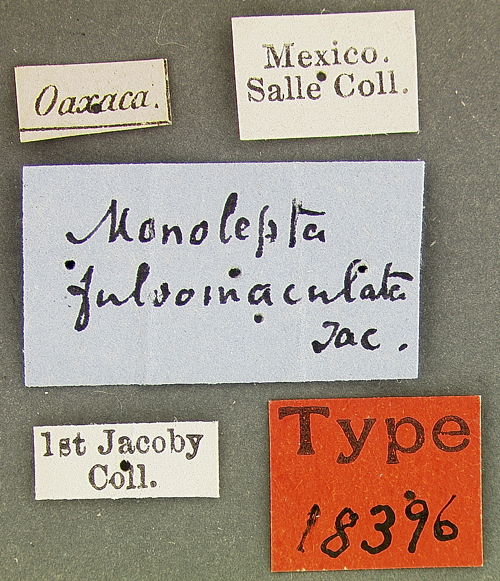 Oaxaca.
Mexico.
Salle Coll.
Monolepta
fulvomaculata
Jac.
1st Jacoby
Coll.
Type
18396